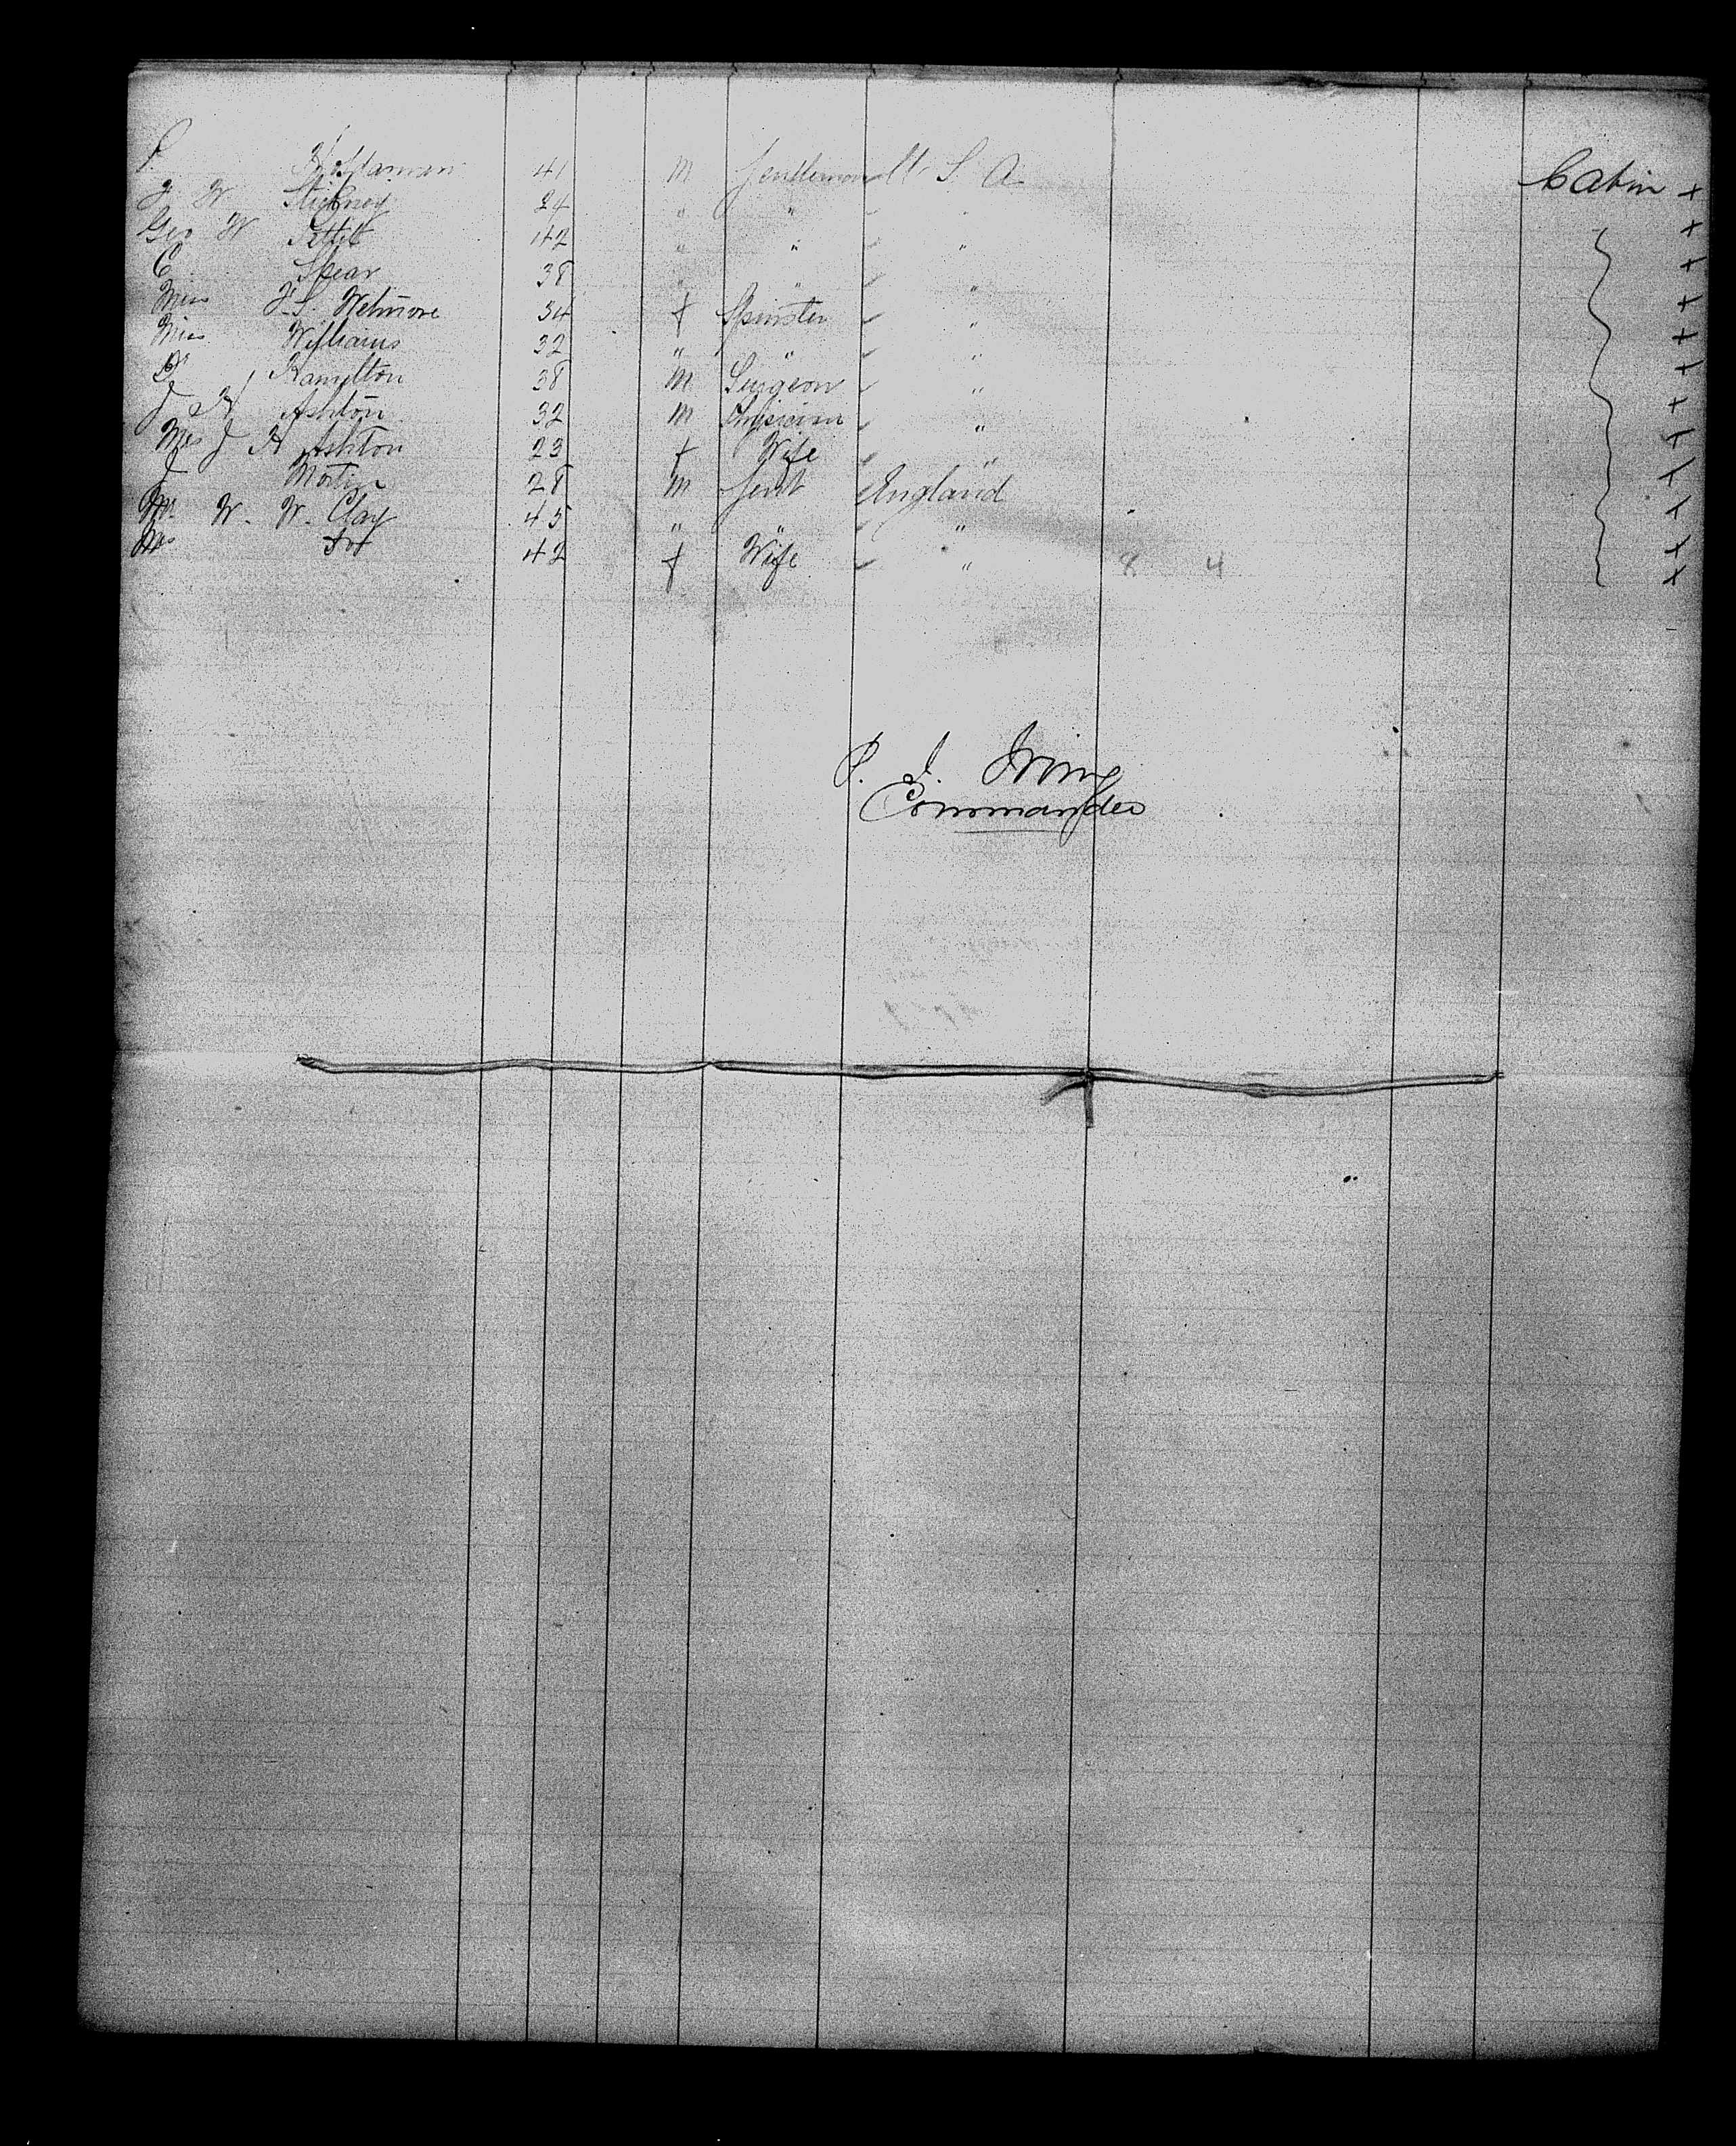 41 m Gentleman U. S. A Cabin +
J W Stickney 24 " " " +
Geo W Pettit 42 " " " +
C. Spear 38 " " " +
Miss F. S. Wetmore 34 f Spinster " +
Miss Williams 32 " " " +
Dr Hamilton 38 m Surgeon " +
J H Ashton 32 m Physician " +
Mrs J H Ashton 23 f Wife " +
J Martin 28 m Gent England +
Mr. W. W. Clay 45 " " " +
Mrs Do 42 f Wife " 8 4 +
P. J. Irving
Commander